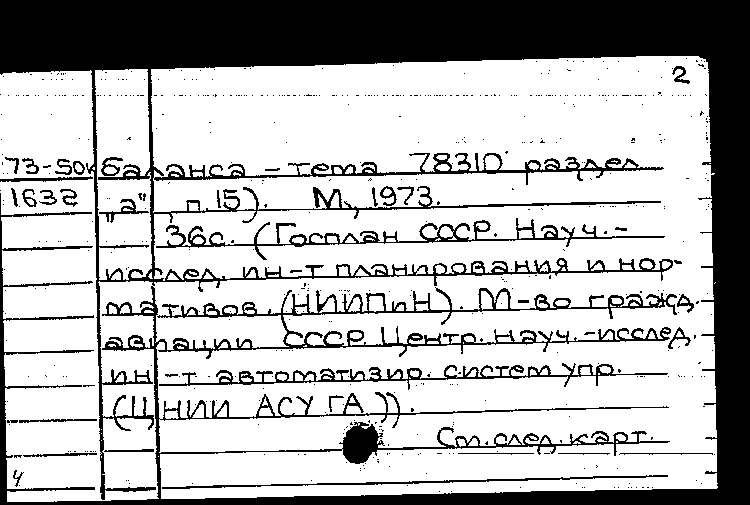 2
73-50к баланса - тема 78310 раздел
1632 „а", п.15). М., 1973.
36с. (Госплан СССР. Науч.-
исслед. ин-т планирования и нор-
мативов. (НИИПиН). М-во гражд.
авиации СССР. Центр. науч.-исслед.
ин-т автоматизир. систем упр.
(ЦНИИ АСУ ГА)).
См. след. карт.
4